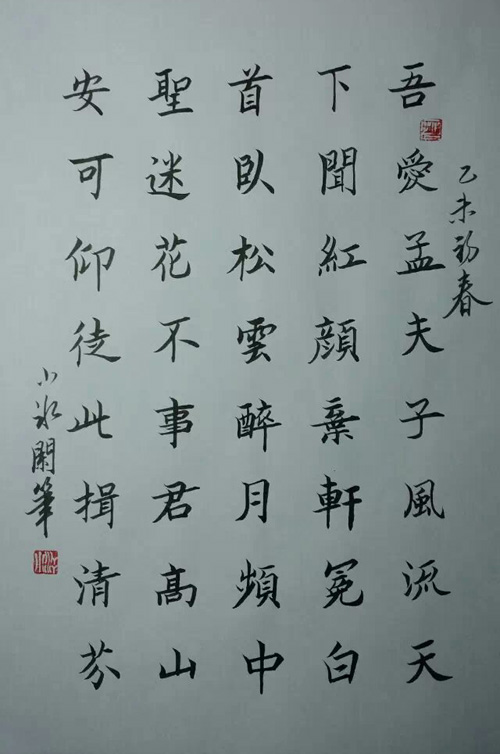 乙未初春
吾愛孟夫子風流天
下聞紅顔棄軒冕白
首臥松雲醉月頻中
聖迷花不事君高山
安可仰徒此揖清芬
小冰閑筆